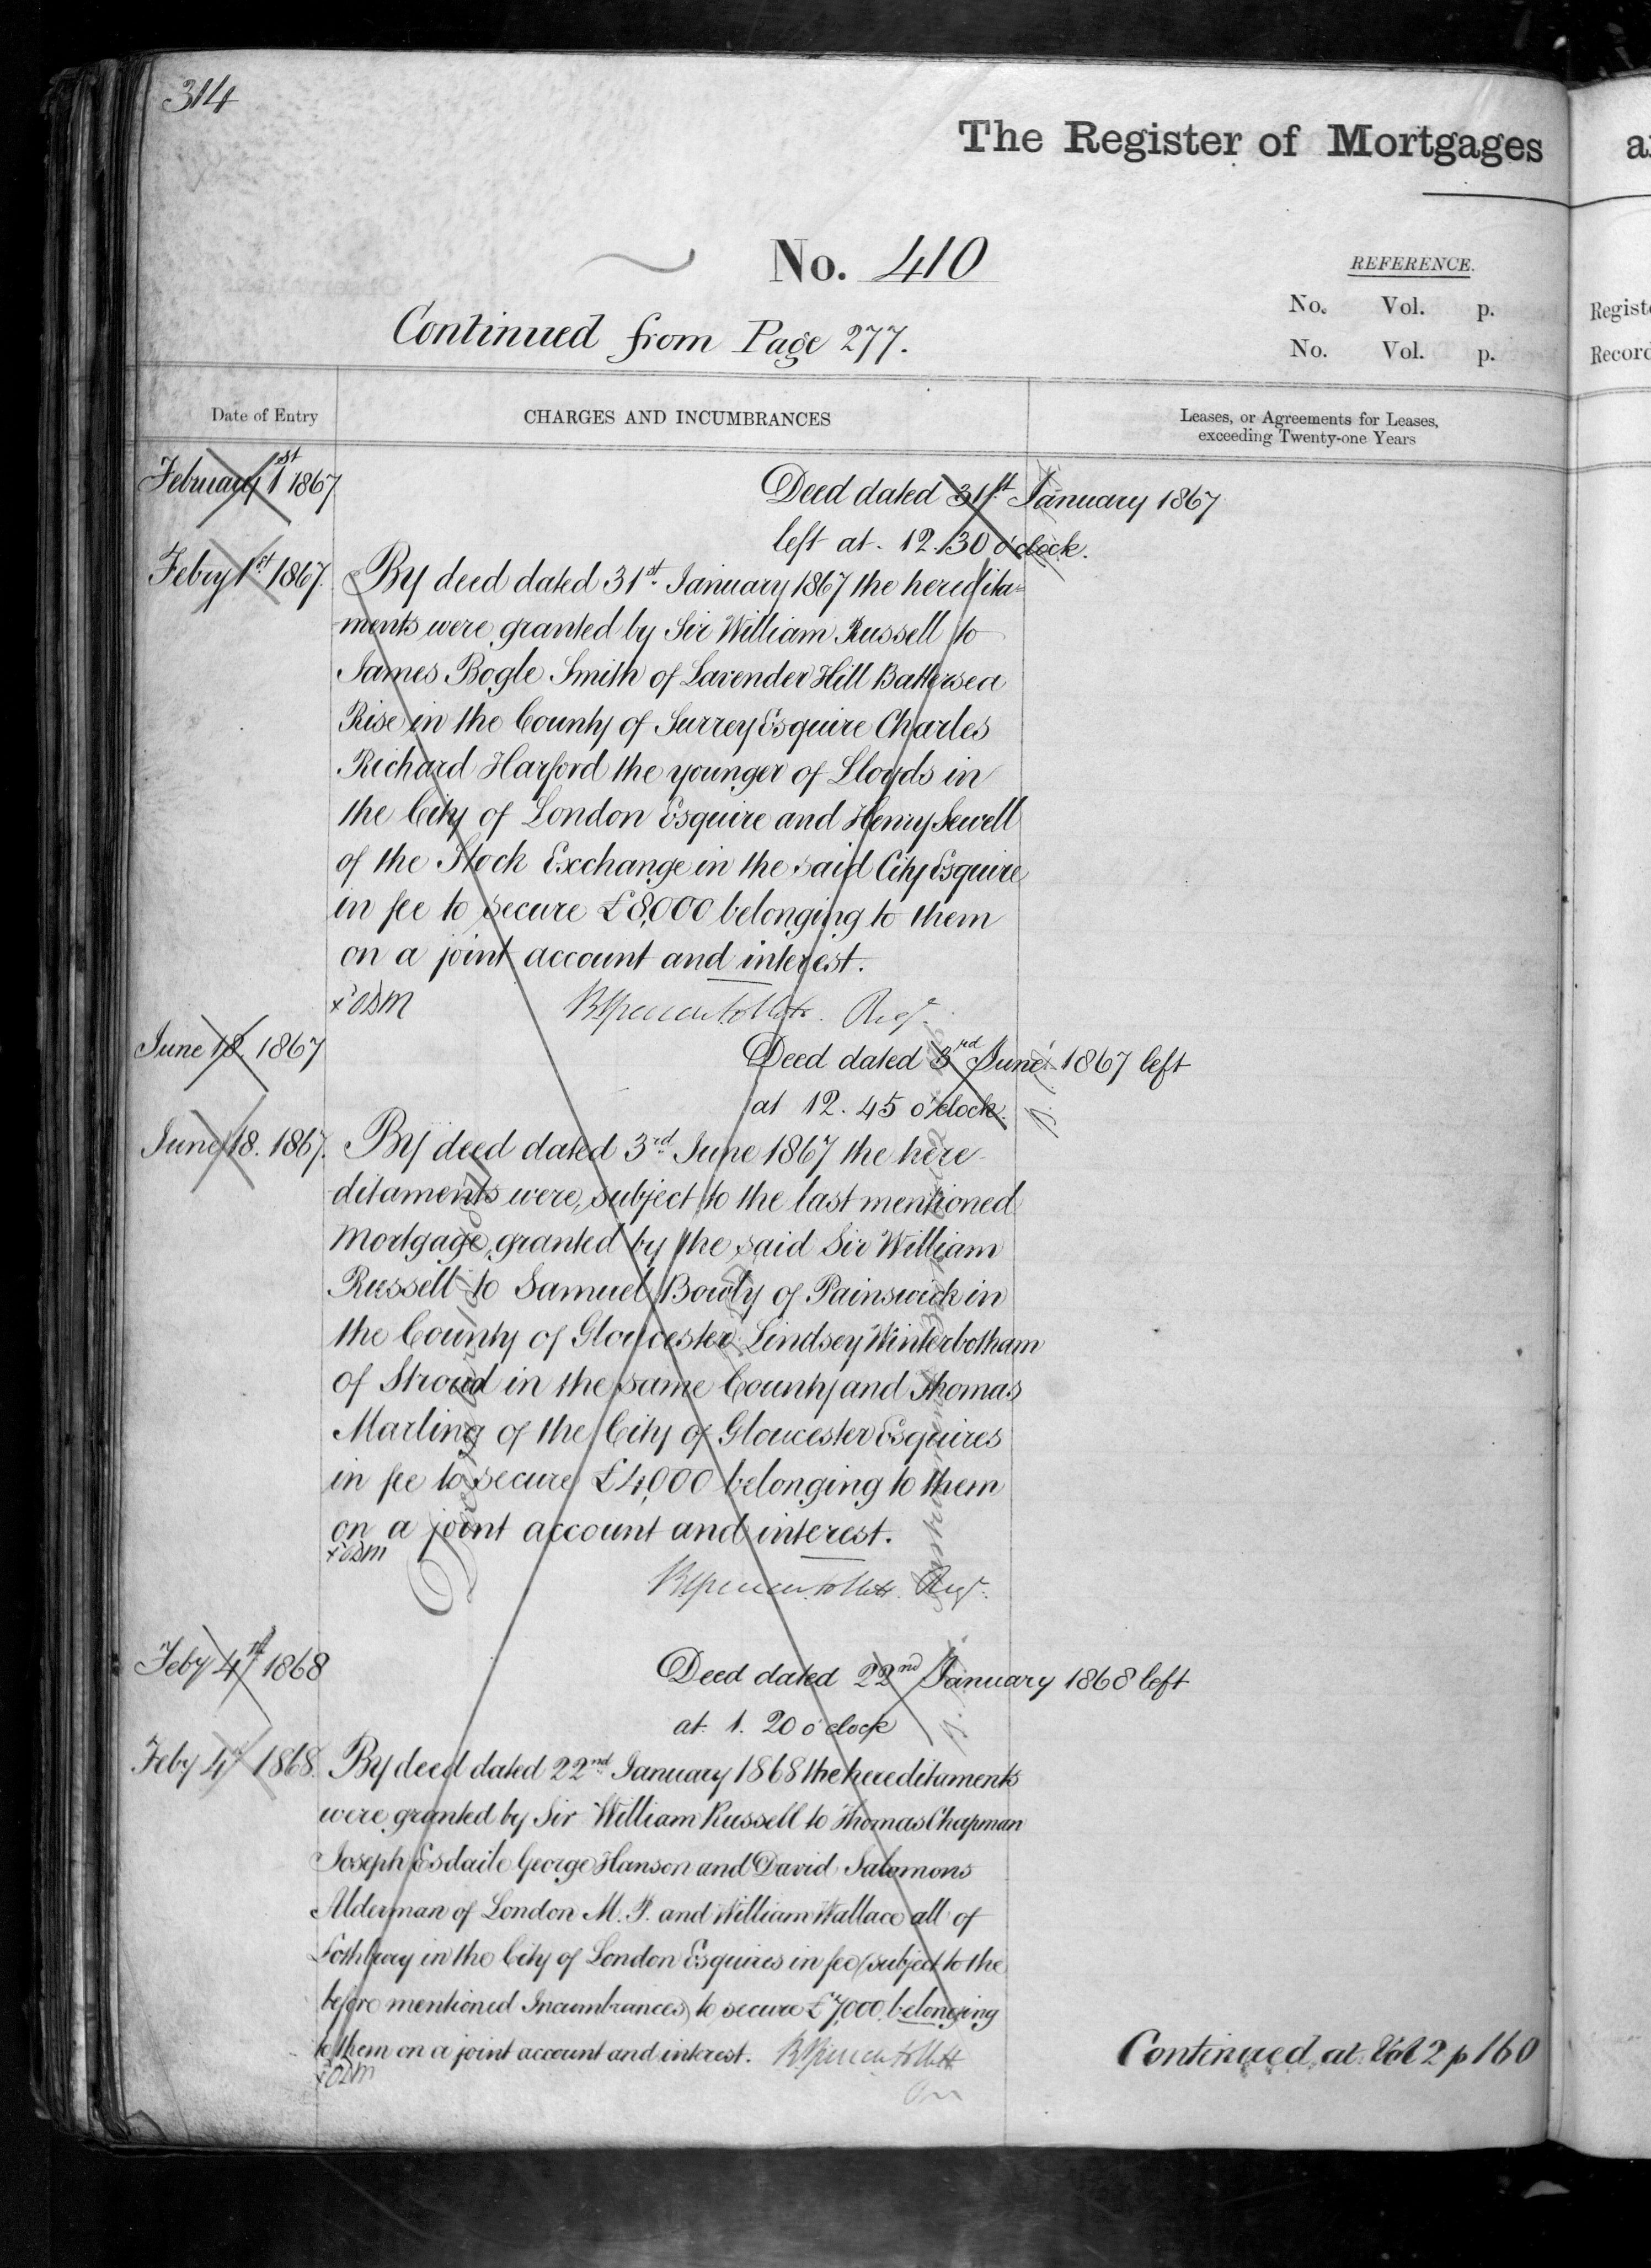 314
The Register of Mortgages
No. 410
REFERENCE.
Continued from Page 277.
No. Vol. p.
No. Vol. p.
Registe
Record
Date of Entry
CHARGES AND INCUMBRANCES
Leases, or Agreements for Leases,
exceeding Twenty-one Years
February 1st 1867
Deed dated 31st January 1867
left at. 12.30 o'clock.
Febry 1st 1867.
By deed dated 31st January 1867 the heredita=
ments were granted by Sir William Russell to
James Bogle Smith of Lavender Hill Battersea
Rise in the County of Surrey Esquire Charles
Richard Harford the younger of Lloyds in
the City of London Esquire and Henry Sewell
of the Stock Exchange in the said City Esquire
in fee to secure £8,000 belonging to them
on a joint account and interest.
Reg.
June 18. 1867
Deed dated 3rd June 1867 left
at 12. 45 o'clock.
June 18. 1867.
By deed dated 3rd June 1867 the here-
ditaments were, subject to the last mentioned
Mortgage, granted by the said Sir William
Russell to Samuel Bowly of Painswick in
the County of Gloucester Lindsey Winterbotham
of Stroud in the same County and Thomas
Marling of the City of Gloucester Esquires
in fee to secure £4,000 belonging to them
on a joint account and interest.
Reg.
Feby 4th 1868
Deed dated 22nd January 1868 left
at 1. 20 o'clock
Feby 4th 1868.
By deed dated 22nd January 1868 the hereditaments
were granted by Sir William Russell to Thomas Chapman
Joseph Esdaile George Hanson and David Salomons
Alderman of London M.P. and William Wallace all of
Lothbury in the City of London Esquires in fee (subject to the
before mentioned Incumbrances) to secure £7,000 belonging
to them on a joint account and interest.
Continued at Vol 2 p 160